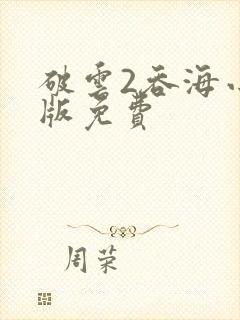 破雲2吞海
版免費
周荣